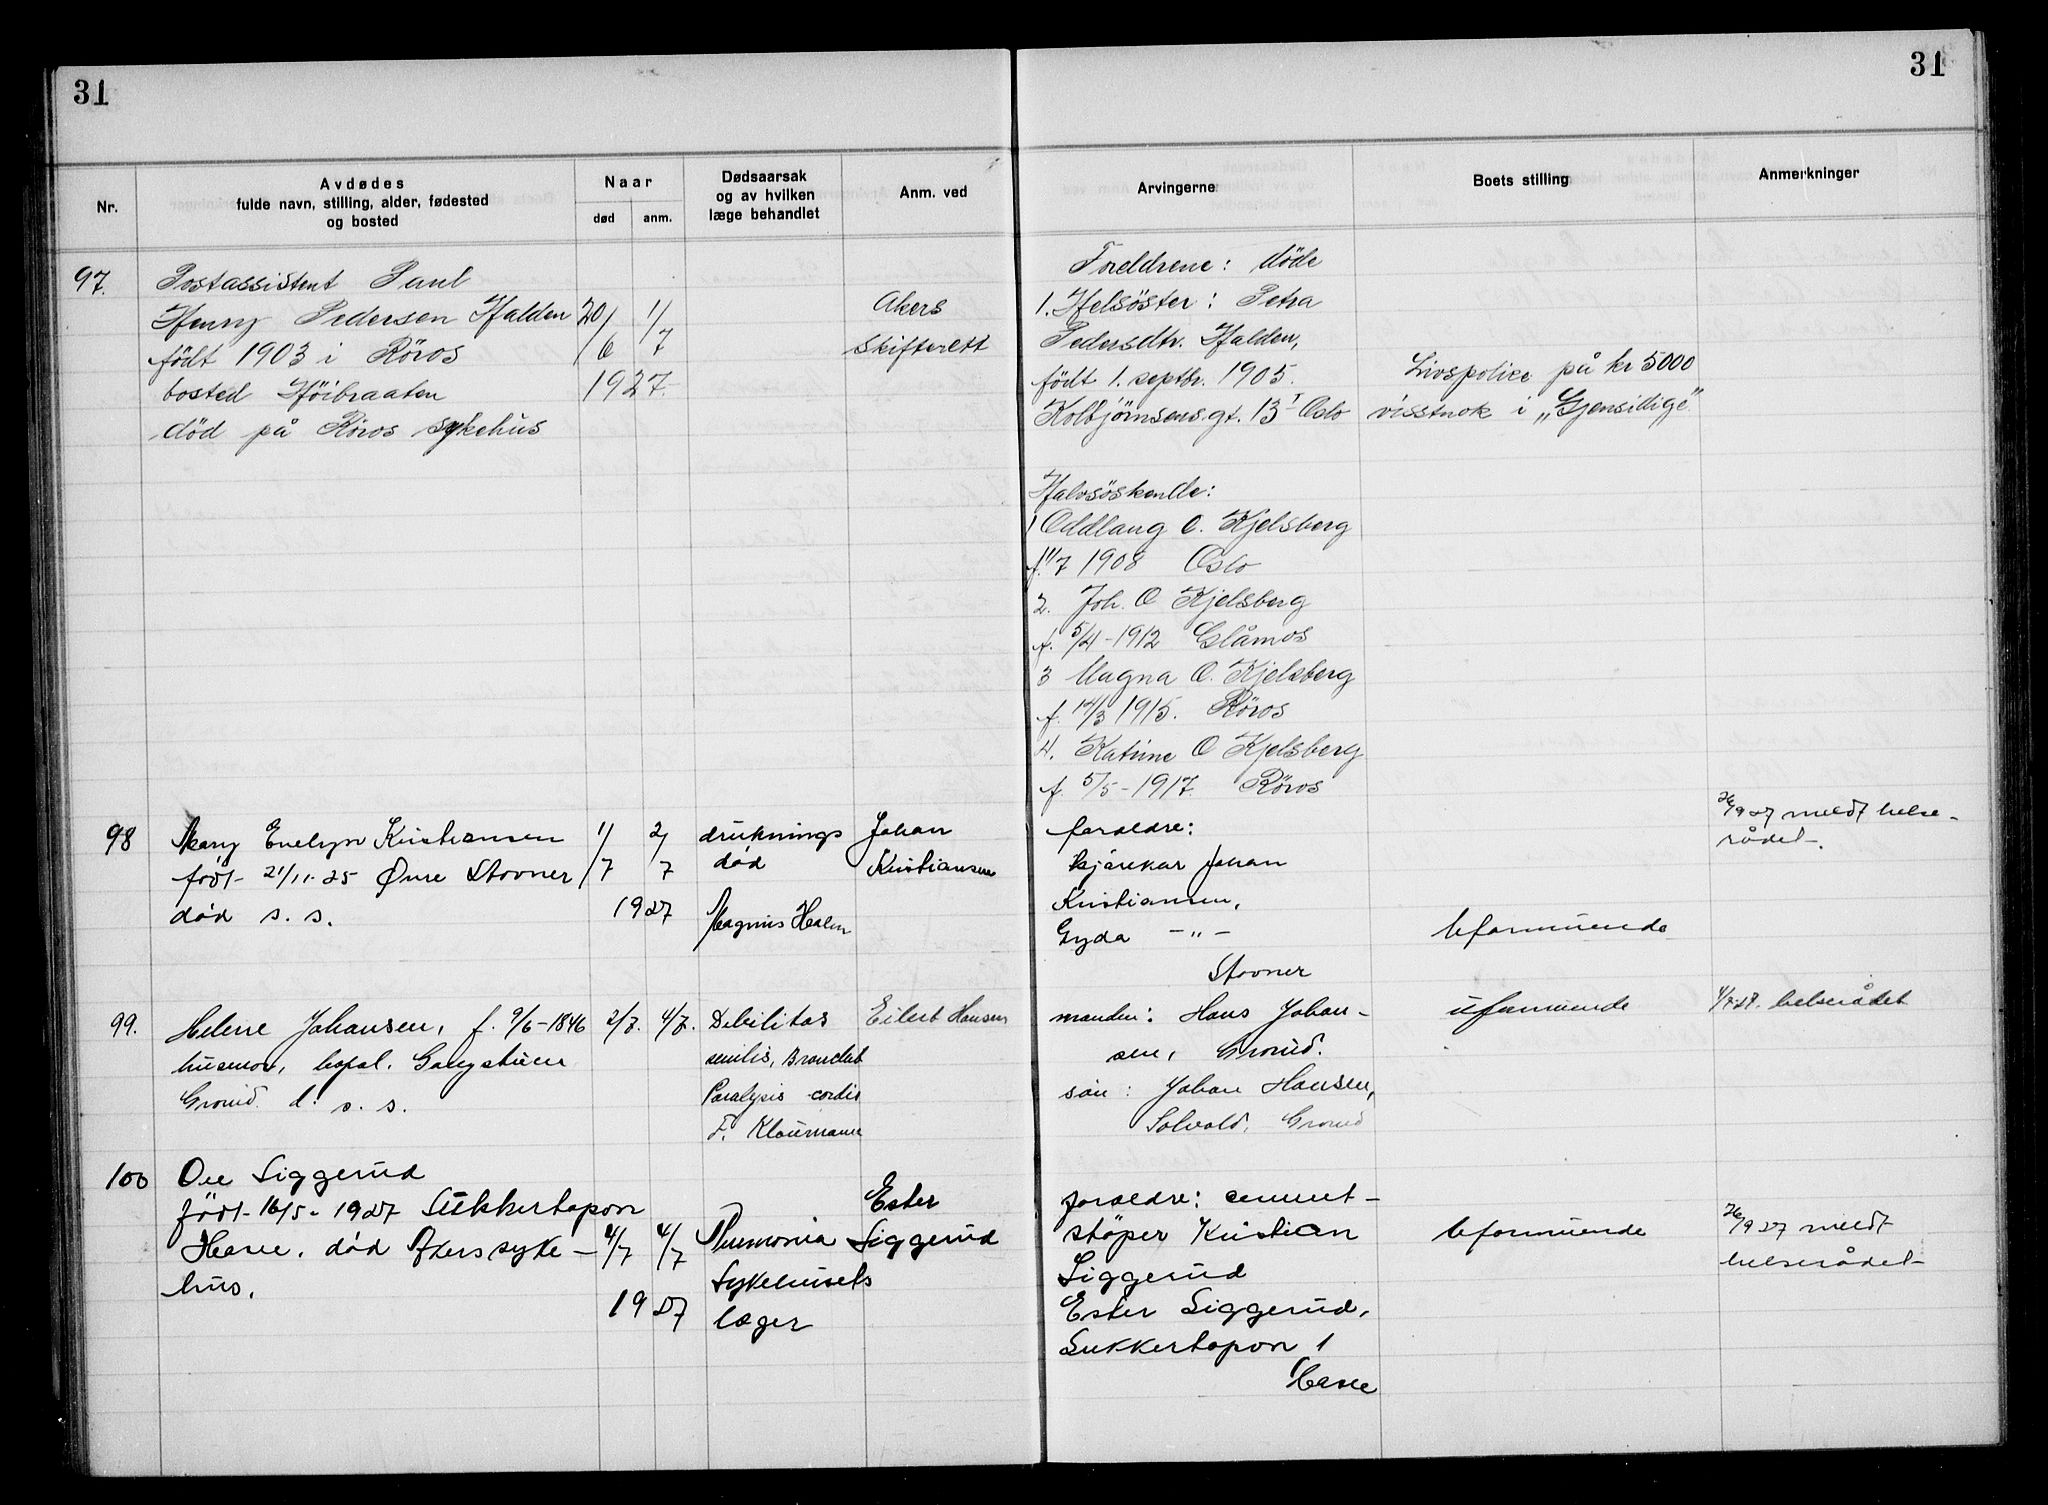 31
31
Nr.
Avdødes
fulde navn, stilling, alder, fødested
og bosted
Naar
død
anm.
Dødsaarsak
og av hvilken
læge behandlet
Anm. ved
Arvingerne
Boets stilling
Anmerkninger
97.
Postassistent Paul
Henry Pedersen Halden
født 1903 i Röros
bosted Høibraaten
död på Röros sykehus
20/6 1/7
1927.
Akers
Skifterett
Foreldrene: döde
1. Helsöster: Petra
Pedersdtr. Halden,
født 1. septbr. 1905.
Kolbjørnsens.gt. 13 I Oslo
Halvsöskende:
1 Oddlaug O. Kjelsberg
f. 11/7 1908 Oslo
2. Joh. O Kjelsberg
f. 5/4-1912 Glåmos
3 Magna O. Kjelsberg
f. 14/3 1915. Röros
4. Katrine O Kjelsberg
f. 5/5-1917. Röros
Livspolise på kr 5000
visstnok i „Gjensidige”
98
Mary Evelyn Kristiansen
født 21/11-25 Øvre Stovner
död s. s.
1/7 2/7
1927
druknings
död
Magnus Halm
Johan
Kristiansen
foreldre:
kjørekar Johan
Kristiansen,
Gyda -"-
Stovner
uformuende
26/9 27 meldt helse-
rådet.
99.
Helene Johansen, f. 9/6-1846
husmor, bopæl.
Grorud d. s. s.
2/7. 4/7.
Debilitas
senilis,
Paralysis cordis
F. Klaumann
Eilert Hansen
manden: Hans Johan-
sen, Grorud.
sön: Johan Hansen,
Solvold, Grorud
uformuende
4/7.27. helserådet
100
Siggerud
født 16/5-1927 Sukkertoppen
død Akers syke-
hus.
4/7 4/7
1927
Pneumonia
Sykehusets
læger
Ester
Siggerud
foreldre: cement-
støper Kristian
Siggerud
Ester Siggerud,
Sukkertoppen 1
uformuende
26/9 27 meldt
helserådet